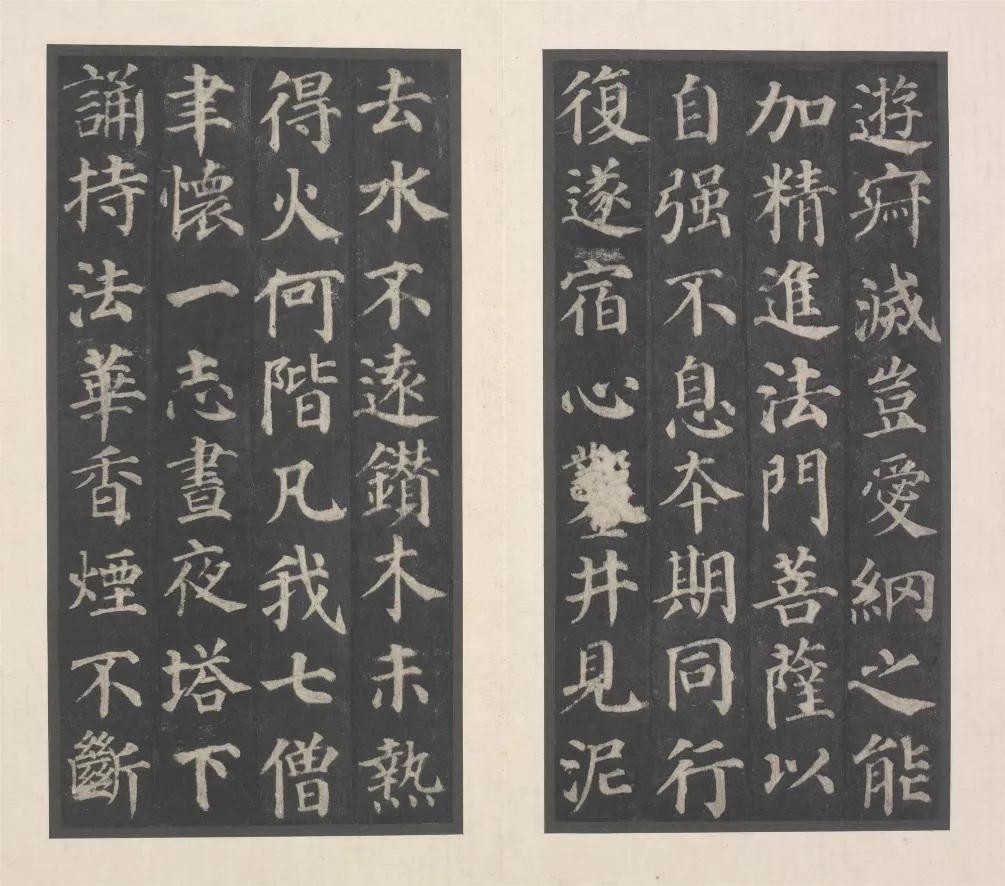 遊寂滅豈愛網之能
加精進法門菩薩以
自强不息本期同行
復遂宿心鑿井見泥
去水不遠鑽木未熱
得火何階凡我七僧
聿懷一志晝夜塔下
誦持法華香煙不斷